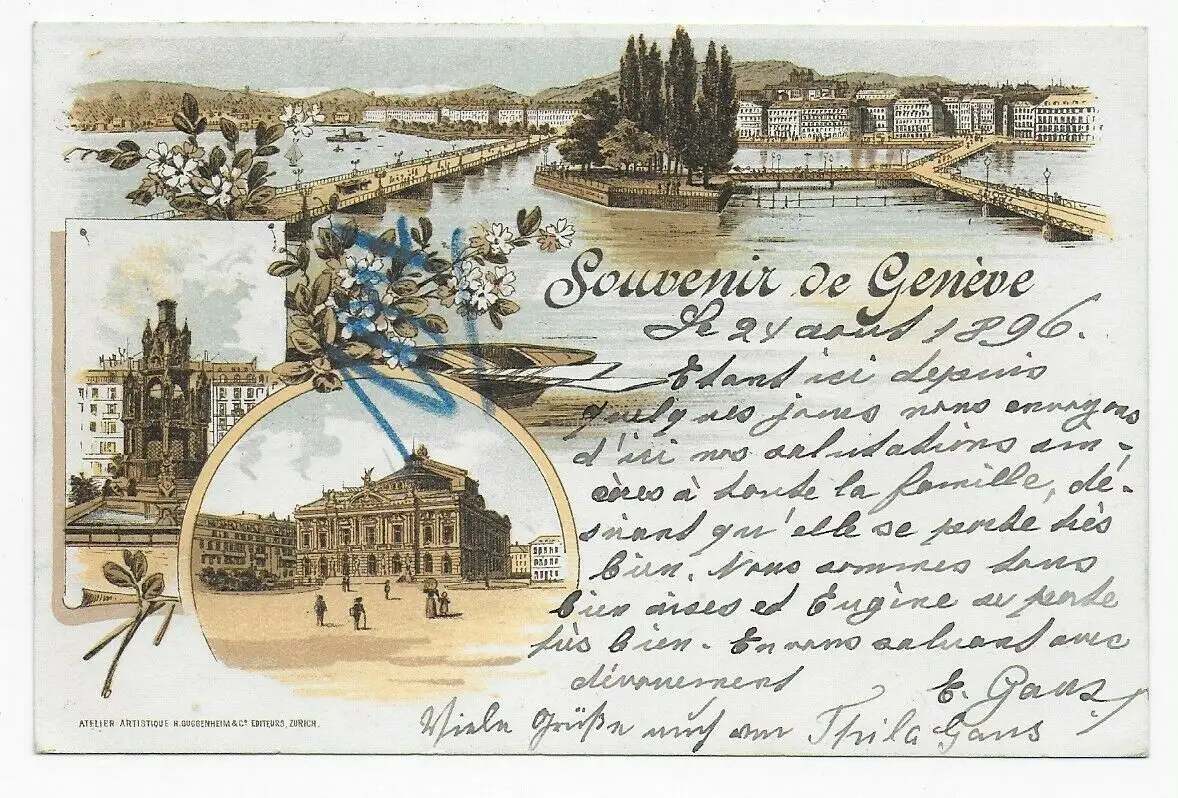 Souvenir de Genève
Le 24 août 1896.
Étant ici depuis
quelques jours nous envoyons
d'ici nos salutations sin-
cères à toute la famille, dé-
sirant qu'elle se porte très
bien. Nous sommes tous
bien aises et Eugène se porte
très bien. En vous saluant avec
dévouement
E. Gans
Viele Grüße auch von Thila Gans
ATELIER ARTISTIQUE H. GUGGENHEIM & Cº EDITEURS, ZURICH.